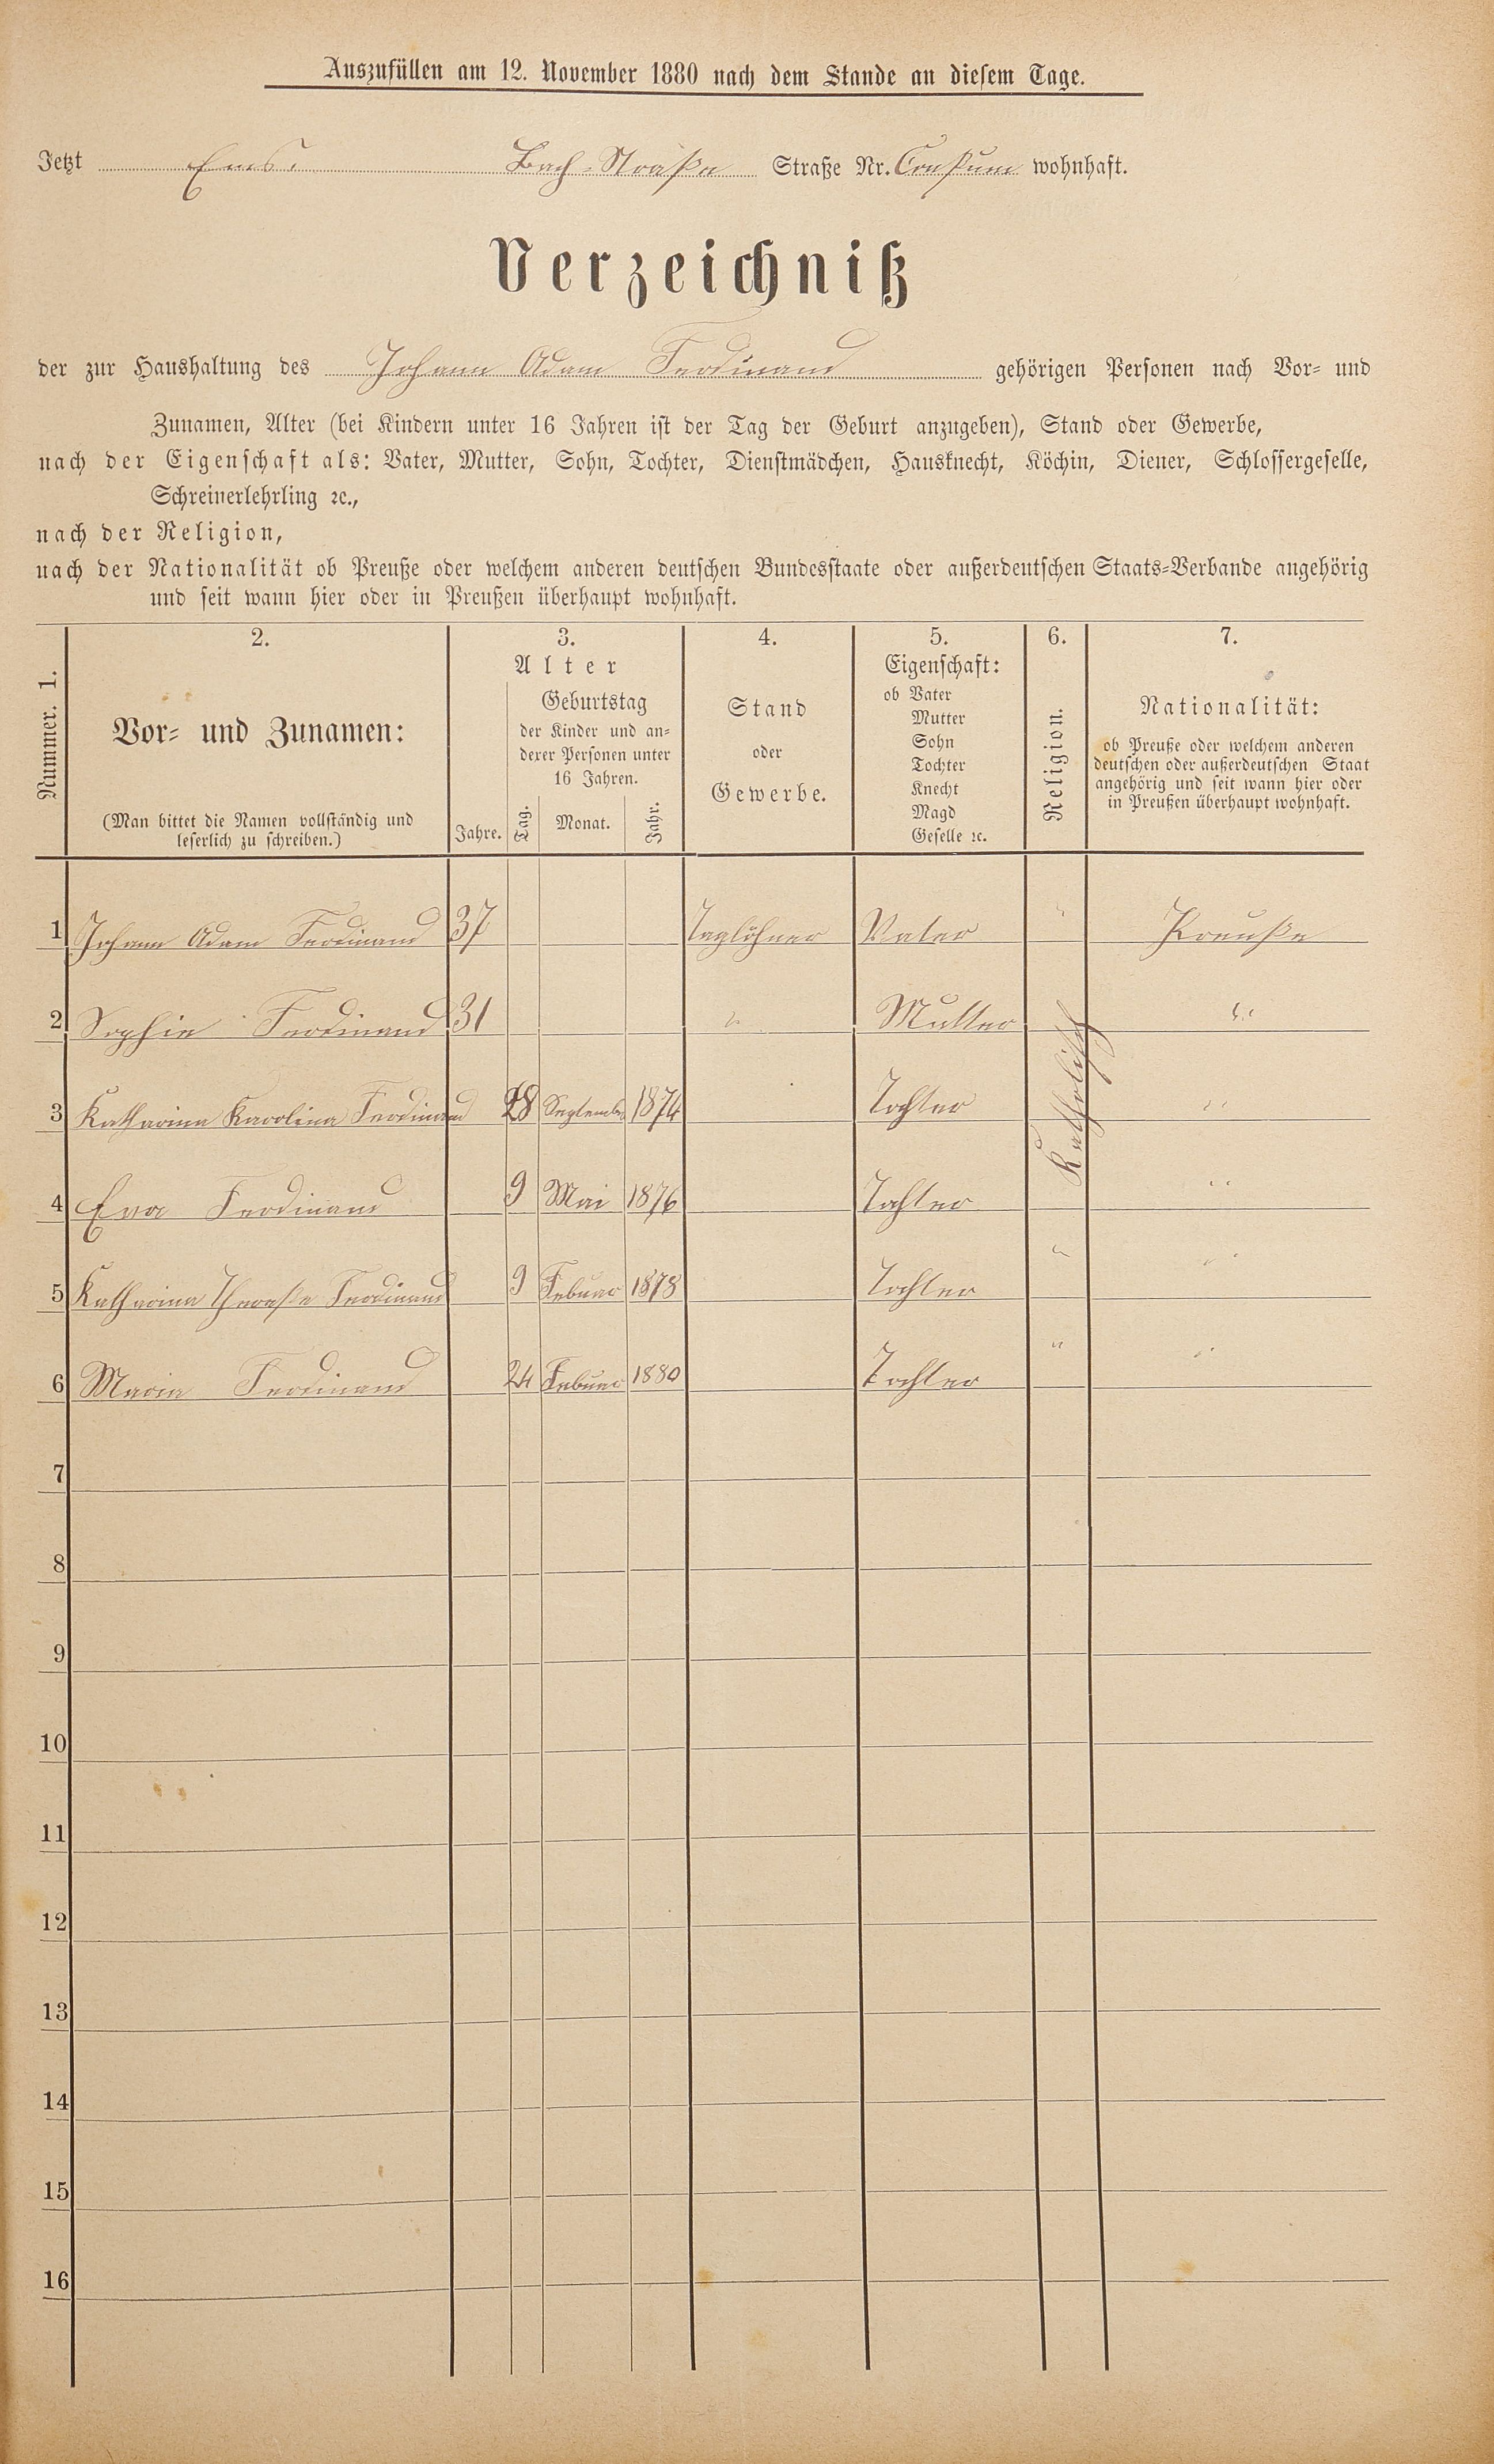 Auszufüllen am 12. November 1880 nach dem Stande an diesem Tage.
Jetzt Ems. Bach-Straße Straße Nr. Consum wohnhaft.
Verzeichniß
der zur Haushaltung des Johann Adam Ferdinand gehörigen Personen nach Vor- und
Zunamen, Alter (bei Kindern unter 16 Jahren ist der Tag der Geburt anzugeben), Stand oder Gewerbe,
nach der Eigenschaft als: Vater, Mutter, Sohn, Tochter, Dienstmädchen, Hausknecht, Köchin, Diener, Schlossergeselle,
Schreinerlehrling ꝛc.,
nach der Religion,
nach der Nationalität ob Preuße oder welchem anderen deutschen Bundesstaate oder außerdeutschen Staats-Verbande angehörig
und seit wann hier oder in Preußen überhaupt wohnhaft.
Nummer. 1.
2.
Vor- und Zunamen:
(Man bittet die Namen vollständig und
leserlich zu schreiben.)
3.
Alter
Jahre.
Geburtstag
der Kinder und an-
derer Personen unter
16 Jahren.
Tag. Monat. Jahr.
4.
Stand
oder
Gewerbe.
5.
Eigenschaft:
ob Vater
Mutter
Sohn
Tochter
Knecht
Magd
Geselle ꝛc.
6.
Religion.
7.
Nationalität:
ob Preuße oder welchem anderen
deutschen oder außerdeutschen Staat
angehörig und seit wann hier oder
in Preußen überhaupt wohnhaft.
1 Johann Adam Ferdinand 37 Taglöhner Vater " Preuße
2 Sophie Ferdinand 31 " Mutter "
Katholisch
3 Katharina Karolina Ferdinand 28 September 1874 Tochter "
4 Eva Ferdinand 9 Mai 1876 Tochter "
5 Katharina Therese Ferdinand 9 Febuar 1878 Tochter " "
6 Maria Ferdinand 24 Febuar 1880 Tochter " "
7
8
9
10
11
12
13
14
15
16